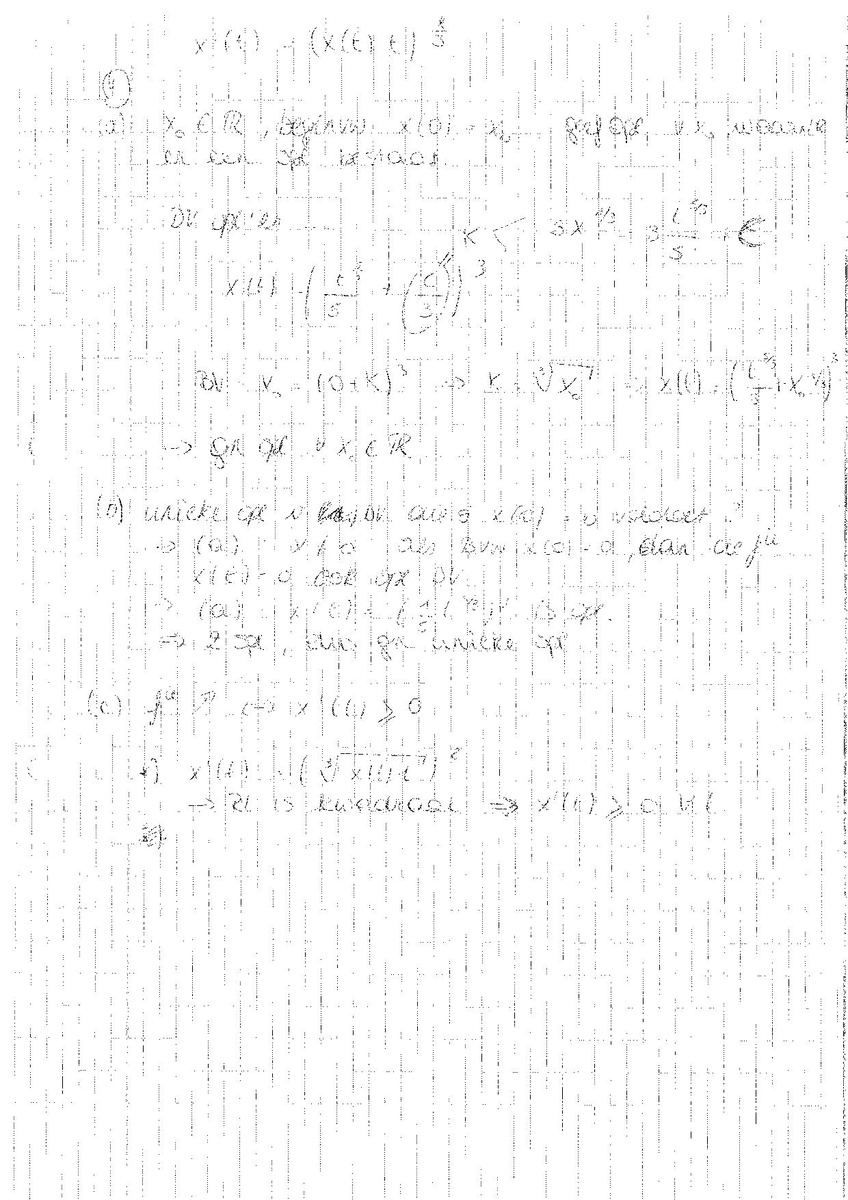 x'(t) = (x(t) t)^{2/3}
(a) x₀ ∈ ℝ, beginvw x(0) = x₀ geef opl. ∀ x₀ waarvoor
er een opl bestaat
DV opl'en 3x^{1/3} = 3 t^{5/3}/5 + C
x(t) = (t^{5/3}/5 + (C/3))³
BV x₀ = (0 + K)³ → K = ∛x₀ → x(t) = (t^{5/3}/5 + x₀^{1/3})³
→ opl ∀ x₀ ∈ ℝ
(b) unieke opl v DV die x(0) = 0 voldoet?
→ (a) als BVW x(0) = 0, dan de
x(t) = 0 ook opl DV
→ (a) x(t) = (1/5 t^{5/3})³ is opl.
→ 2 opl, dus gn unieke opl
(c) ↗ ↔ x'(t) ⩾ 0
x'(t) = (∛(x(t) t))²
→ RL is kwadraat ⇒ x'(t) ⩾ 0 ∀ t